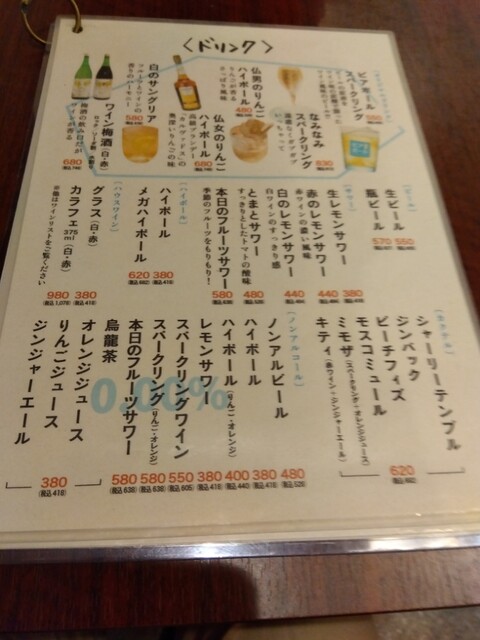 〈ドリンク〉
ビアボール
スパークリング
580
なみなみ
スパークリング
830
仏男のりんご
ハイボール
りんごが香る
さっぱり風味
480
仏女のりんご
ハイボール
高級ブランデー
「カルヴァドス」の
奥深いりんごの味
680
白のサングリア
580
ワイン梅酒(白・赤)
680
[ビール]
生ビール
550
瓶ビール
570
[サワー]
生レモンサワー
380
赤のレモンサワー
赤ワインの濃い風味
440
白のレモンサワー
白ワインのすっきり感
440
とまとサワー
すっきりとしたトマトの酸味
480
本日のフルーツサワー
季節のフルーツをもりもり!
580
[ハイボール]
ハイボール
380
メガハイボール
620
[ハウスワイン]
グラス(白・赤)
380
カラフェ 375ml(白・赤)
980
※瓶はワインリストをご覧ください
[カクテル]
シャーリーテンプル
ジンバック
ピーチフィズ
モスコミュール
ミモザ(スパークリング・オレンジジュース)
キティ(赤ワイン・ジンジャーエール)
620
[ノンアルコール]
0.00%
ノンアルビール
480
ハイボール
380
ハイボール(りんご・オレンジ)
400
レモンサワー
380
スパークリングワイン
550
スパークリング(りんご・オレンジ)
580
本日のフルーツサワー
580
烏龍茶
オレンジジュース
りんごジュース
ジンジャーエール
380
(税込418)